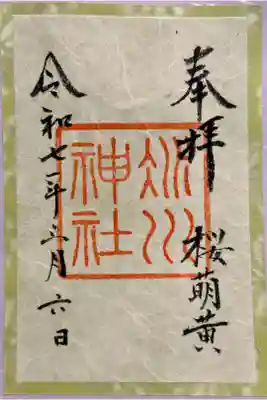 奉拝 桜萌黄
氷川
神社
令和七年三月六日